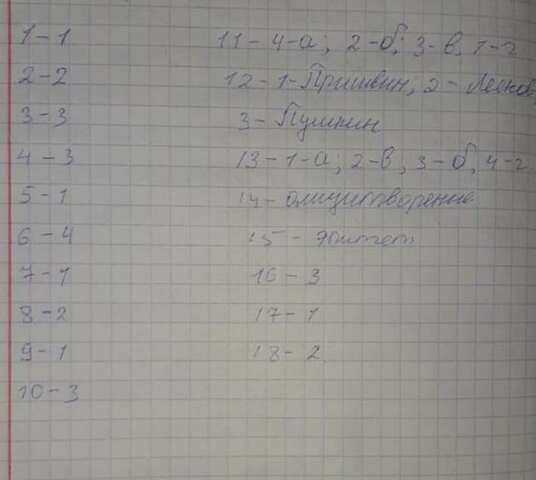 1-1
2-2
3-3
4-3
5-1
6-4
7-1
8-2
9-1
10-3
11-4-а; 2-б; 3-в, 1-г
12-1-Пришвин, 2-Лесков
3-Пушкин
13-1-а; 2-в, 3-б, 4-г
14-олицетворение
15-эпитет
16-3
17-1
18-2